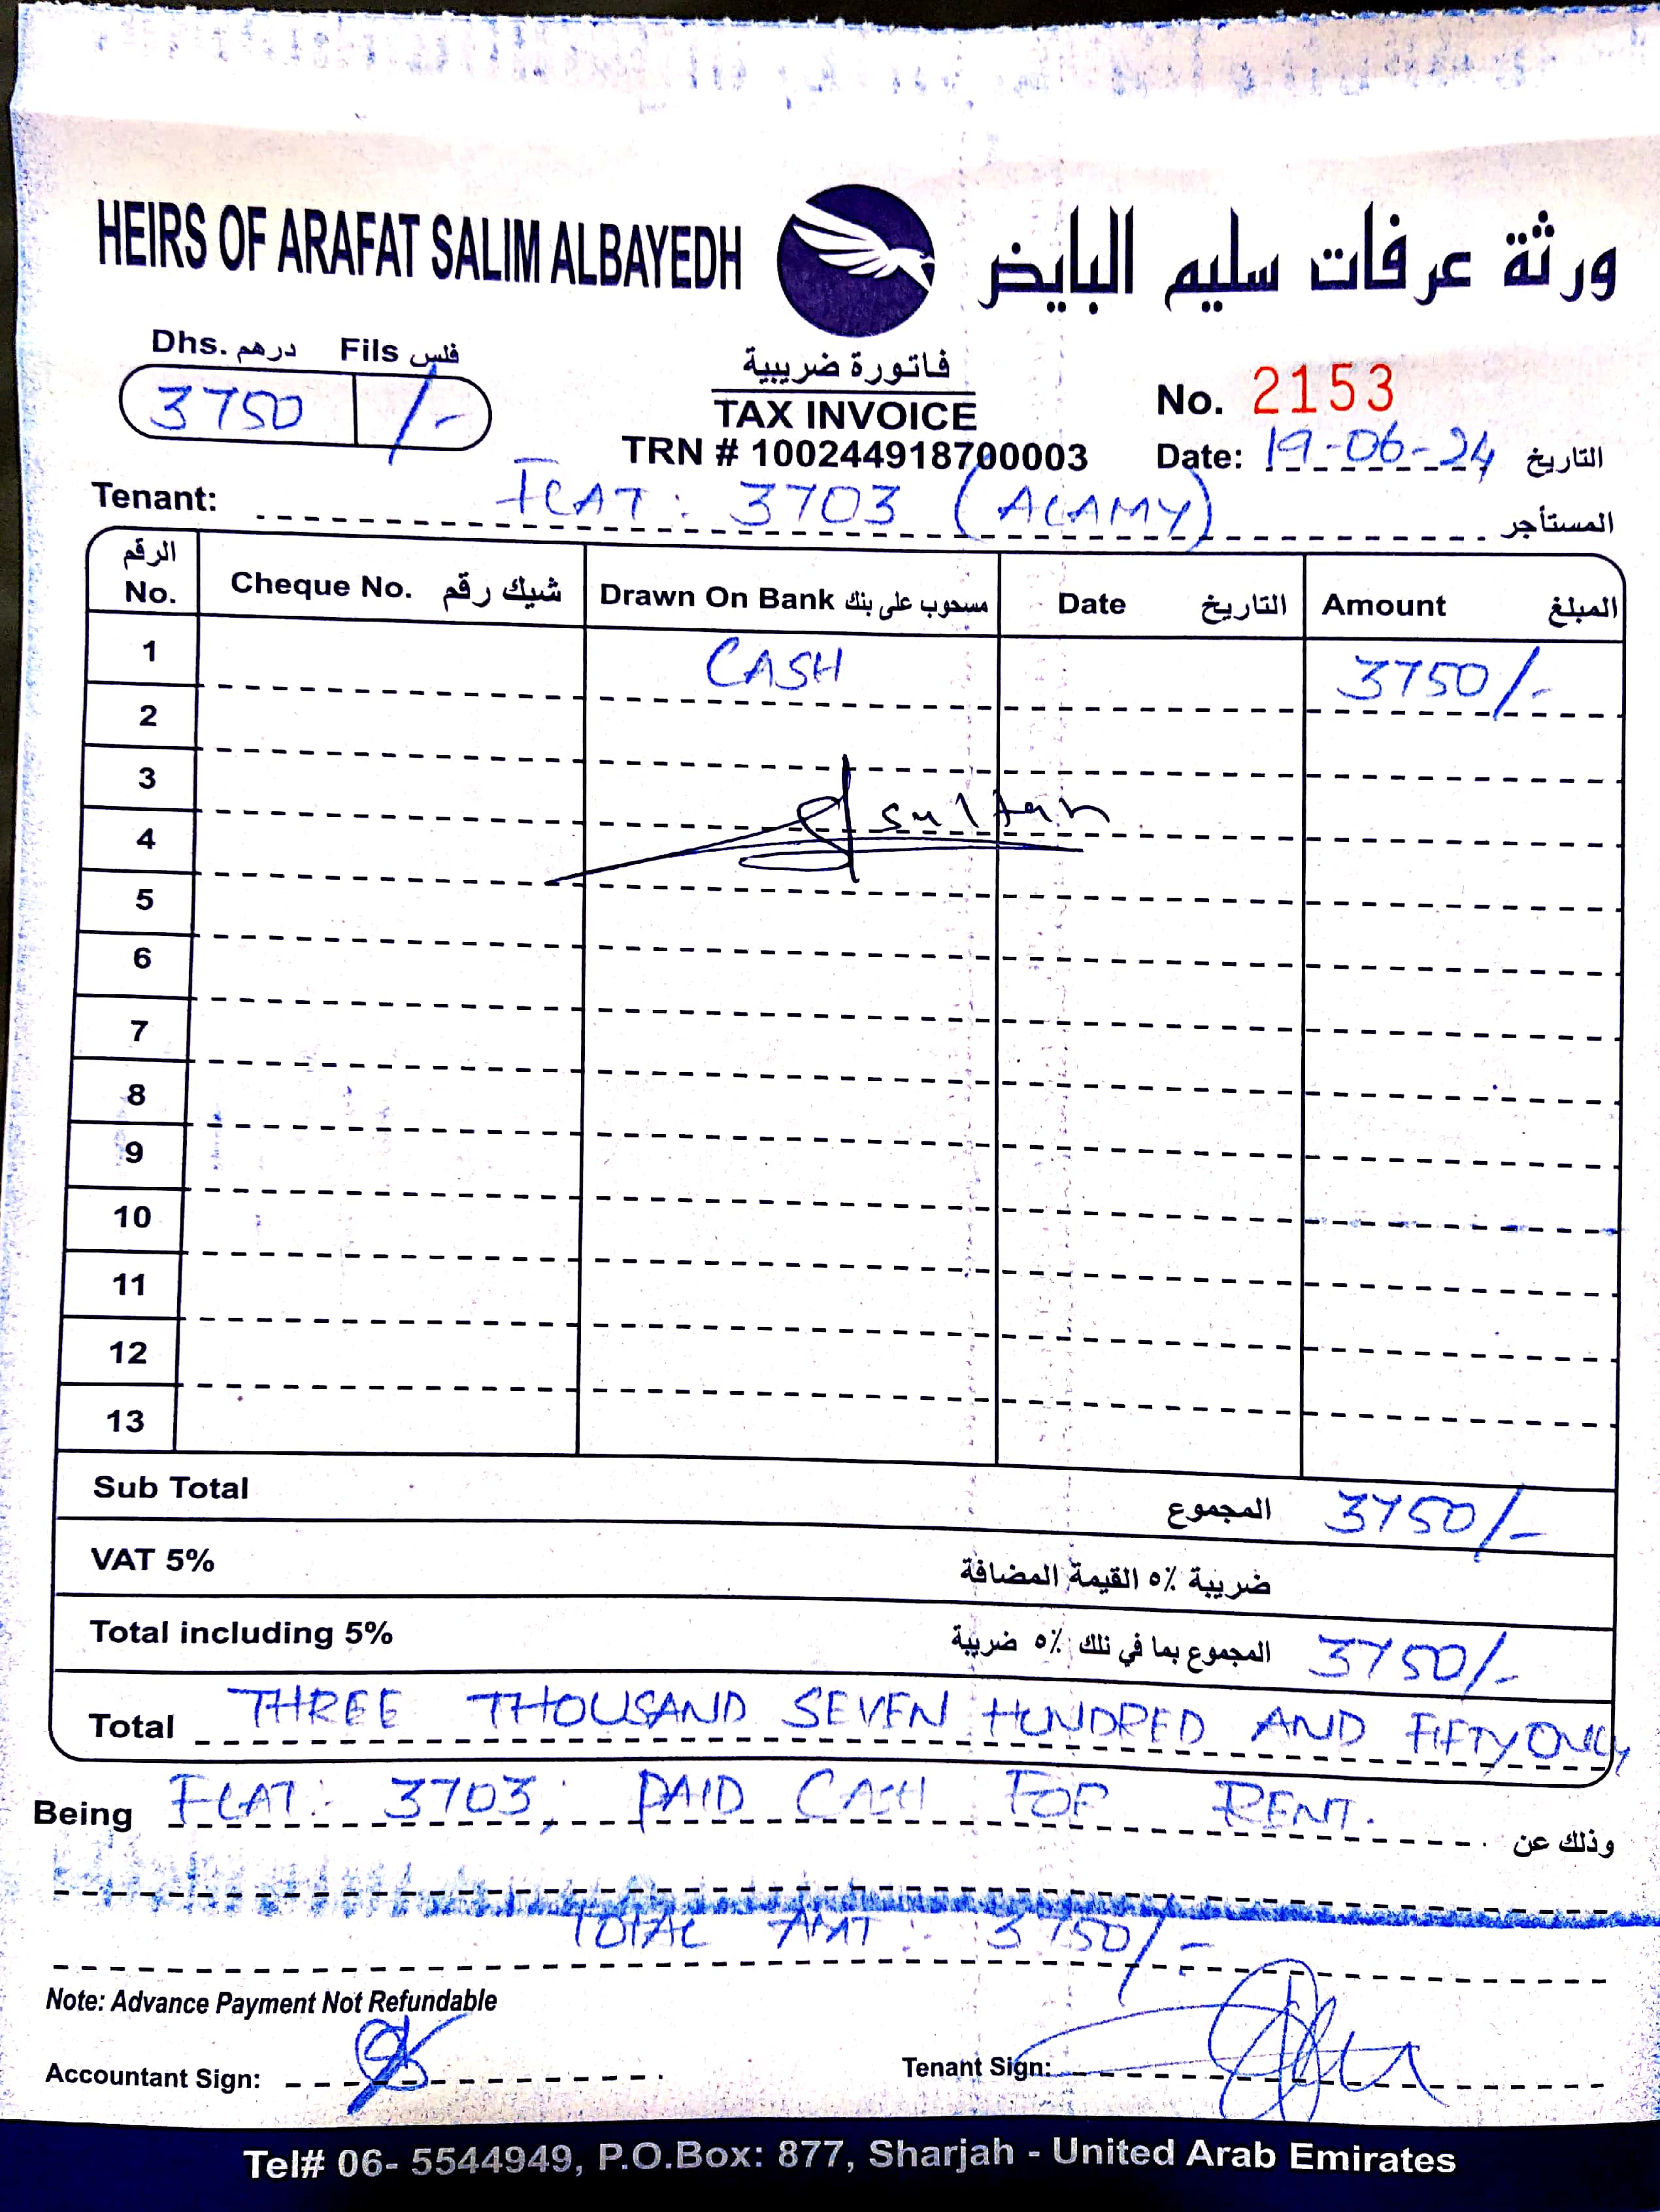 HEIRS OF ARAFAT SALIM ALBAYEDH ورثة عرفات سليم البايض
Dhs. درهم Fils فلس
3750 /-
فاتورة ضريبية
TAX INVOICE
TRN # 100244918700003
No. 2153
Date: 19-06-24 التاريخ
Tenant: FLAT: 3703 (ALAMY) المستأجر
الرقم No. Cheque No. شيك رقم Drawn On Bank مسحوب على بنك Date التاريخ Amount المبلغ
1 CASH 3750/-
2
3
sultan
4
5
6
7
8
9
10
11
12
13
Sub Total المجموع 3750/-
VAT 5% ضريبة ٥٪ القيمة المضافة
Total including 5% المجموع بما في ذلك ٥٪ ضريبة 3750/-
Total THREE THOUSAND SEVEN HUNDRED AND FIFTY ONLY
Being FLAT: 3703, PAID CASH FOR RENT. وذلك عن
TOTAL AMT : 3750/-
Note: Advance Payment Not Refundable
Accountant Sign:
Tenant Sign:
Tel# 06- 5544949, P.O.Box: 877, Sharjah - United Arab Emirates